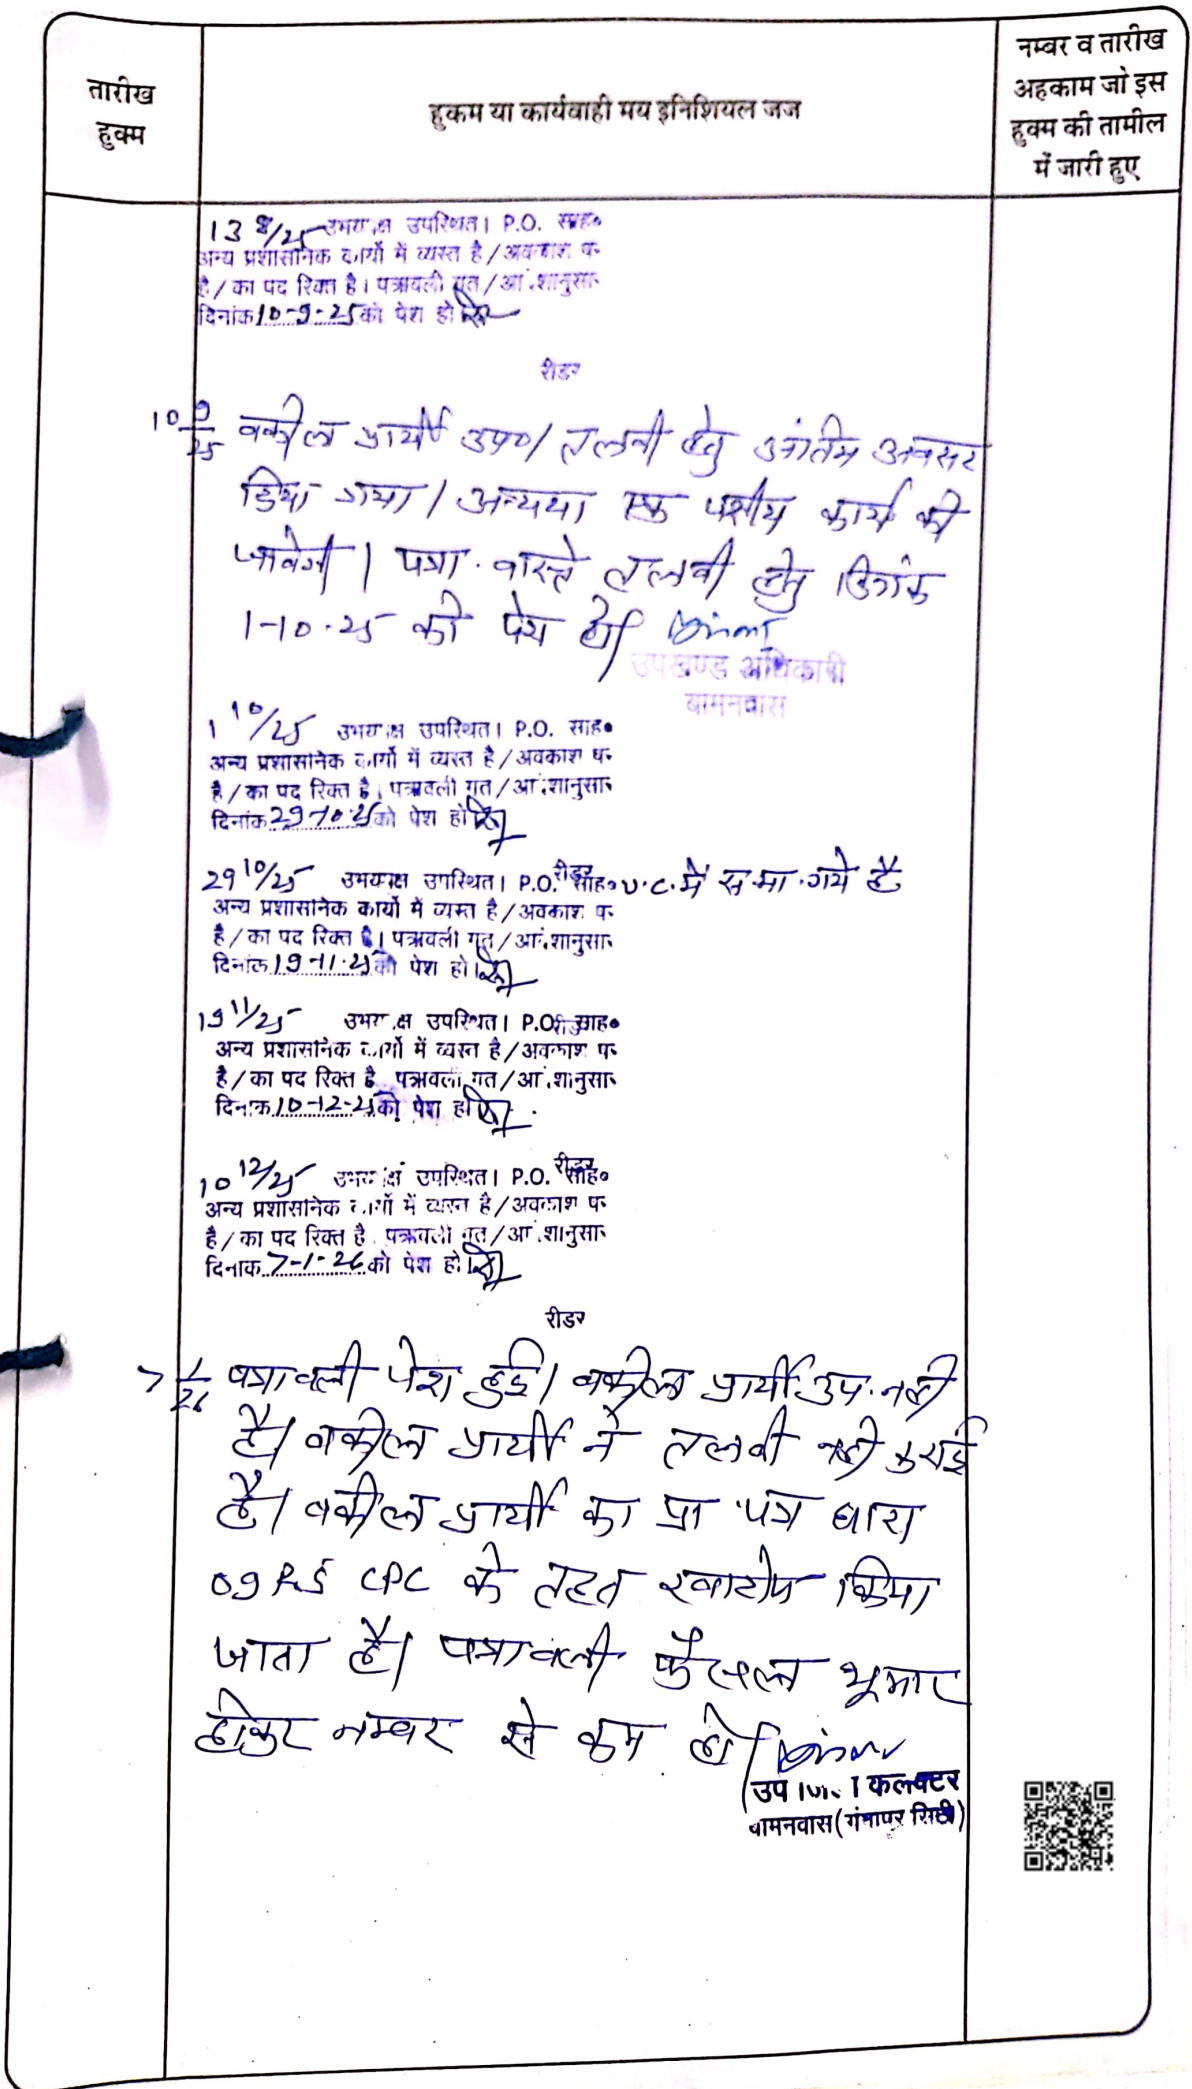 तारीख
हुक्म
हुकम या कार्यवाही मय इनिशियल जज
नम्बर व तारीख
अहकाम जो इस
हुक्म की तामील
में जारी हुए
13 8/25 उभयपक्ष उपस्थित। P.O. साह०
अन्य प्रशासनिक कार्यो में व्यस्त है / अवकाश प
है / का पद रिक्त है। पत्रावली गत / आदेशानुसार
दिनांक 10-9-25 को पेश हो
रीडर
10 9/25 वकील प्रार्थी उप० / तलवी हेतु अंतिम अवसर
दिया गया / अन्यथा एक पक्षीय कार्य की
जावेगी / पत्रा. वास्ते तलवी हेतु दिनांक
1-10-25 को पेश हो /
उपखण्ड अधिकारी
बामनवास
1 10/25 उभयपक्ष उपस्थित। P.O. साह०
अन्य प्रशासनिक कार्यो में व्यस्त है / अवकाश प
है / का पद रिक्त है। पत्रावली गत / आदेशानुसार
दिनांक 29-10-25 को पेश हो
रीडर
29 10/25 उभयपक्ष उपस्थित। P.O. साह० V.C. में गये है
अन्य प्रशासनिक कार्यो में व्यस्त है / अवकाश प
है / का पद रिक्त है। पत्रावली गत / आदेशानुसार
दिनांक 19-11-25 को पेश हो।
रीडर
19 11/25 उभयपक्ष उपस्थित। P.O. साह०
अन्य प्रशासनिक कार्यो में व्यस्त है / अवकाश प
है / का पद रिक्त है पत्रावली गत / आदेशानुसार
दिनांक 10-12-25 को पेश हो
रीडर
10 12/25 उभयपक्ष उपस्थित। P.O. साह०
अन्य प्रशासनिक कार्यो में व्यस्त है / अवकाश प
है / का पद रिक्त है पत्रावली गत / आदेशानुसार
दिनांक 7-1-26 को पेश हो।
रीडर
7 1/26 पत्रावली पेश हुई / वकील प्रार्थी उप. नही
है / वकील प्रार्थी ने तलवी नही कराई
है / वकील प्रार्थी का प्रा पत्र धारा
09 R5 CPC के तहत खारीज किया
जाता है / पत्रावली फैसल शूमार
होकर नम्बर से कम हो /
उप कलक्टर
बामनवास (गंगापुर सिटी)